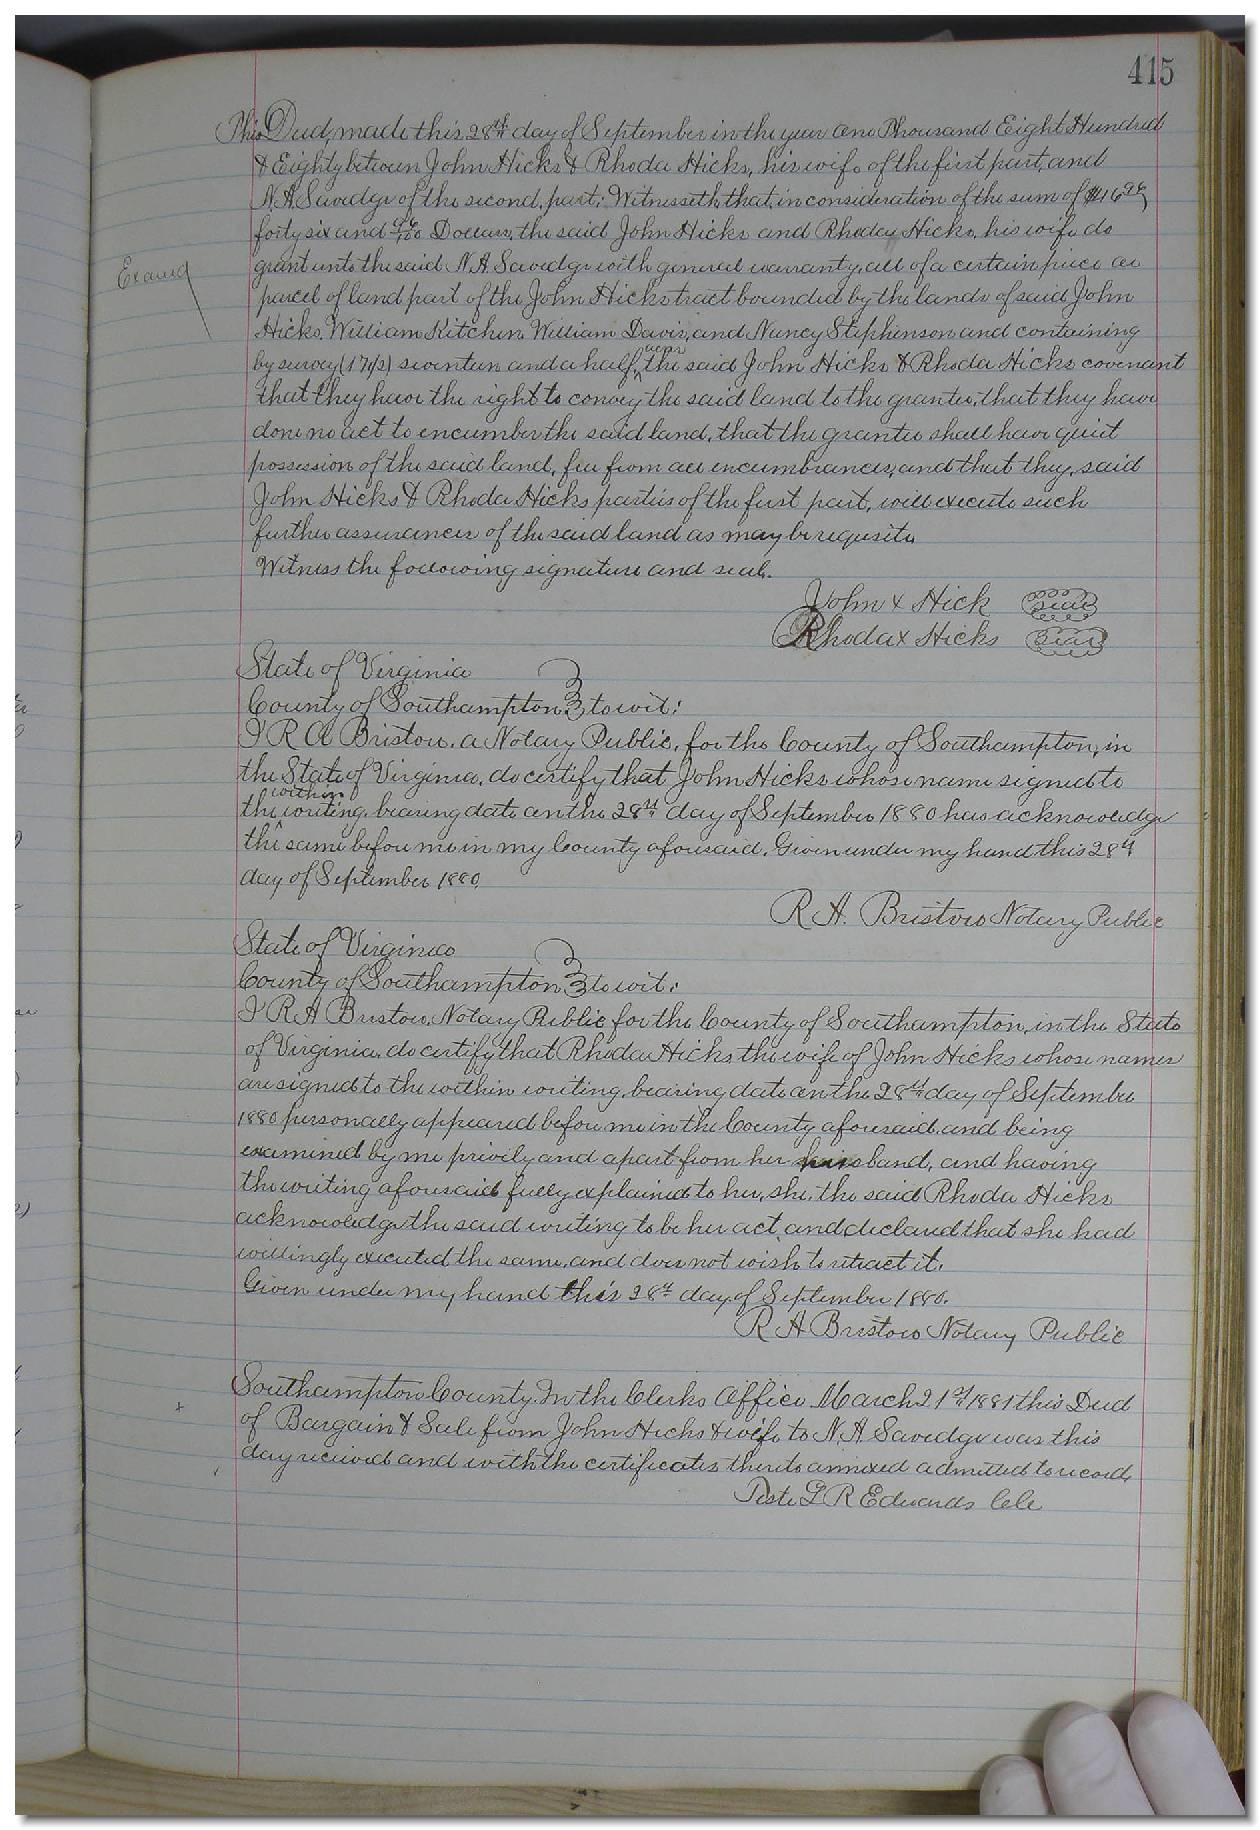 415
This Deed, made this 28th day of September in the year One Thousand Eight Hundred
& Eighty between John Hicks & Rhoda Hicks, his wife of the first part, and
N. A. Savedge of the second, part; Witnesseth, that, in consideration of the sum of
forty six and Dollars, the said John Hicks and Rhoday Hicks, his wife do
grant unto the said N. A. Savedge with general warranty, all of a certain piece or
Examd
parcel of land part of the John Hicks tract bounded by the lands of said John
Hicks, William Kitchen, William Davis, and Nancy Stephenson and containing
by survey (17½) seventeen and a half acres the said John Hicks & Rhoda Hicks covenant
that they have the right to convey the said land to the grantee, that they have
done no act to encumber the said land, that the grantee shall have quiet
possession of the said land, free from all encumbrances, and that they, said
John Hicks & Rhoda Hicks parties of the first part, will execute such
further assurances of the said land as may be requisite
Witness the following signature and seal.
John x Hick seal
Rhoda x Hicks seal
State of Virginia
County of Southampton to wit:
I R A Bristow, a Notary Public, for the County of Southampton, in
the State of Virginia, do certify that John Hicks whose name signed to
the within writing, bearing date on the 28th day of September 1880 has acknowledge
the same before me in my County aforesaid. Given under my hand this 28th
day of September 1880.
R. A. Bristow Notary Public
State of Virginia
County of Southampton to wit:
I R A Bristow, Notary Public for the County of Southampton, in the State
of Virginia, do certify that Rhoda Hicks the wife of John Hicks whose names
are signed to the within writing, bearing date on the 28th day of September
1880 personally appeared before me in the County aforesaid, and being
examined by me privily and apart from her husband, and having
the writing aforesaid fully explained to her, she, the said Rhoda Hicks
acknowledge the said writing to be her act, and declared that she had
willingly executed the same, and does not wish to retract it.
Given under my hand this 28th day of September 1880.
R A Bristow Notary Public
Southampton County. In the Clerks Office March 21st 1881 this Deed
of Bargain & Sale from John Hicks & wife to N. A. Savedge was this
day received and with the certificates thereto annexed admitted to record,
Teste L R Edwards Clk